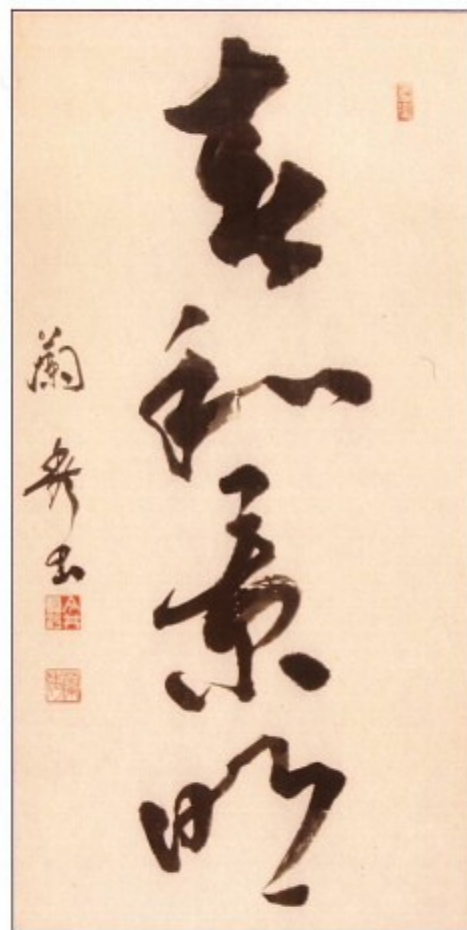 春和景明
蘭秀書